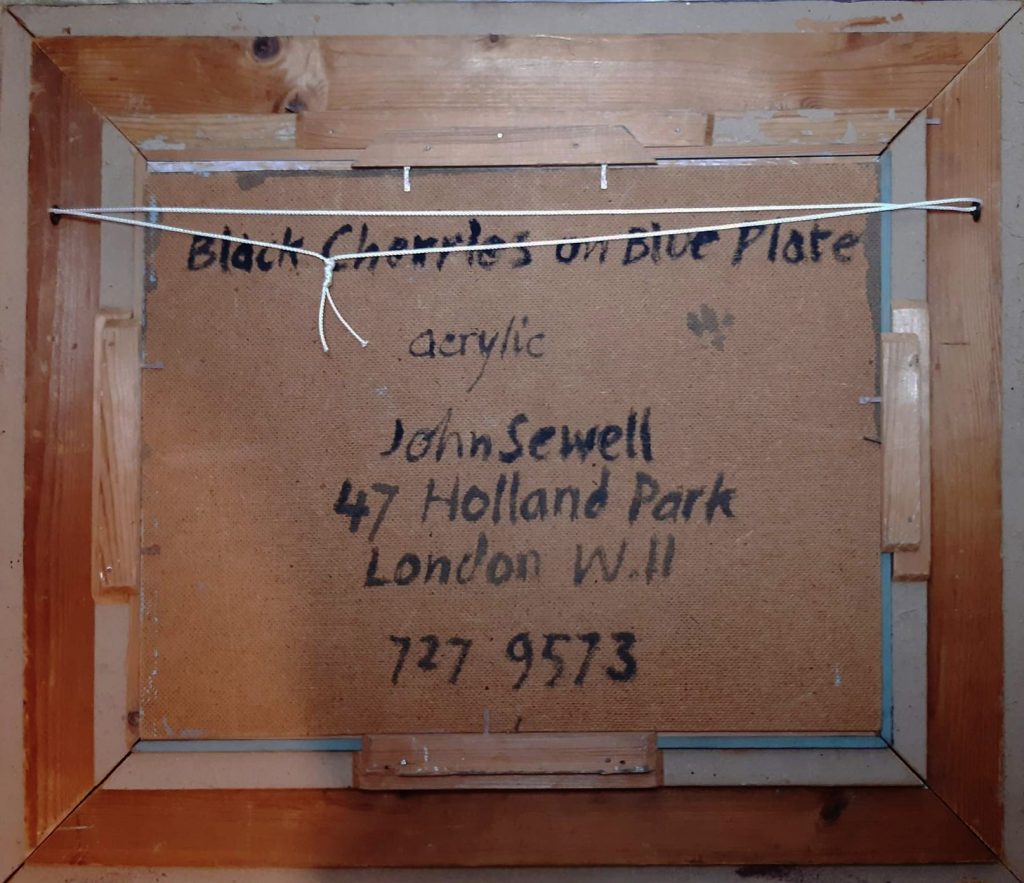 Black Cherries on Blue Plate
acrylic
John Sewell
47 Holland Park
London W.11
727 9573